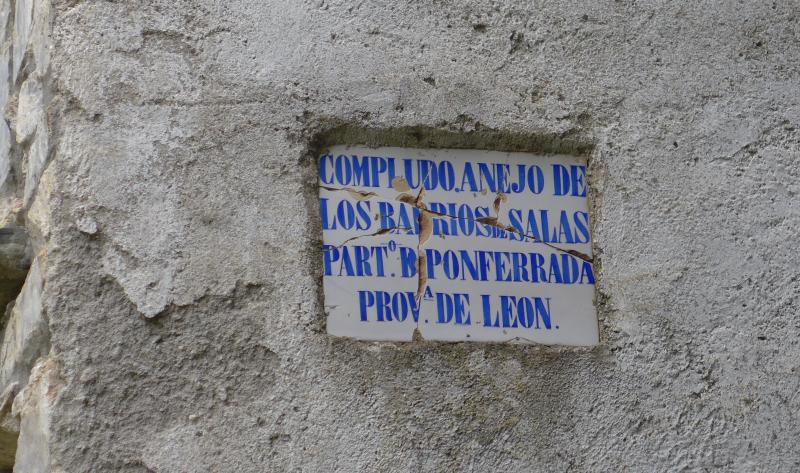 COMPLUDO, ANEJO DE
LOS BARRIOS DE SALAS
PART.º D PONFERRADA
PROV.ª DE LEON.